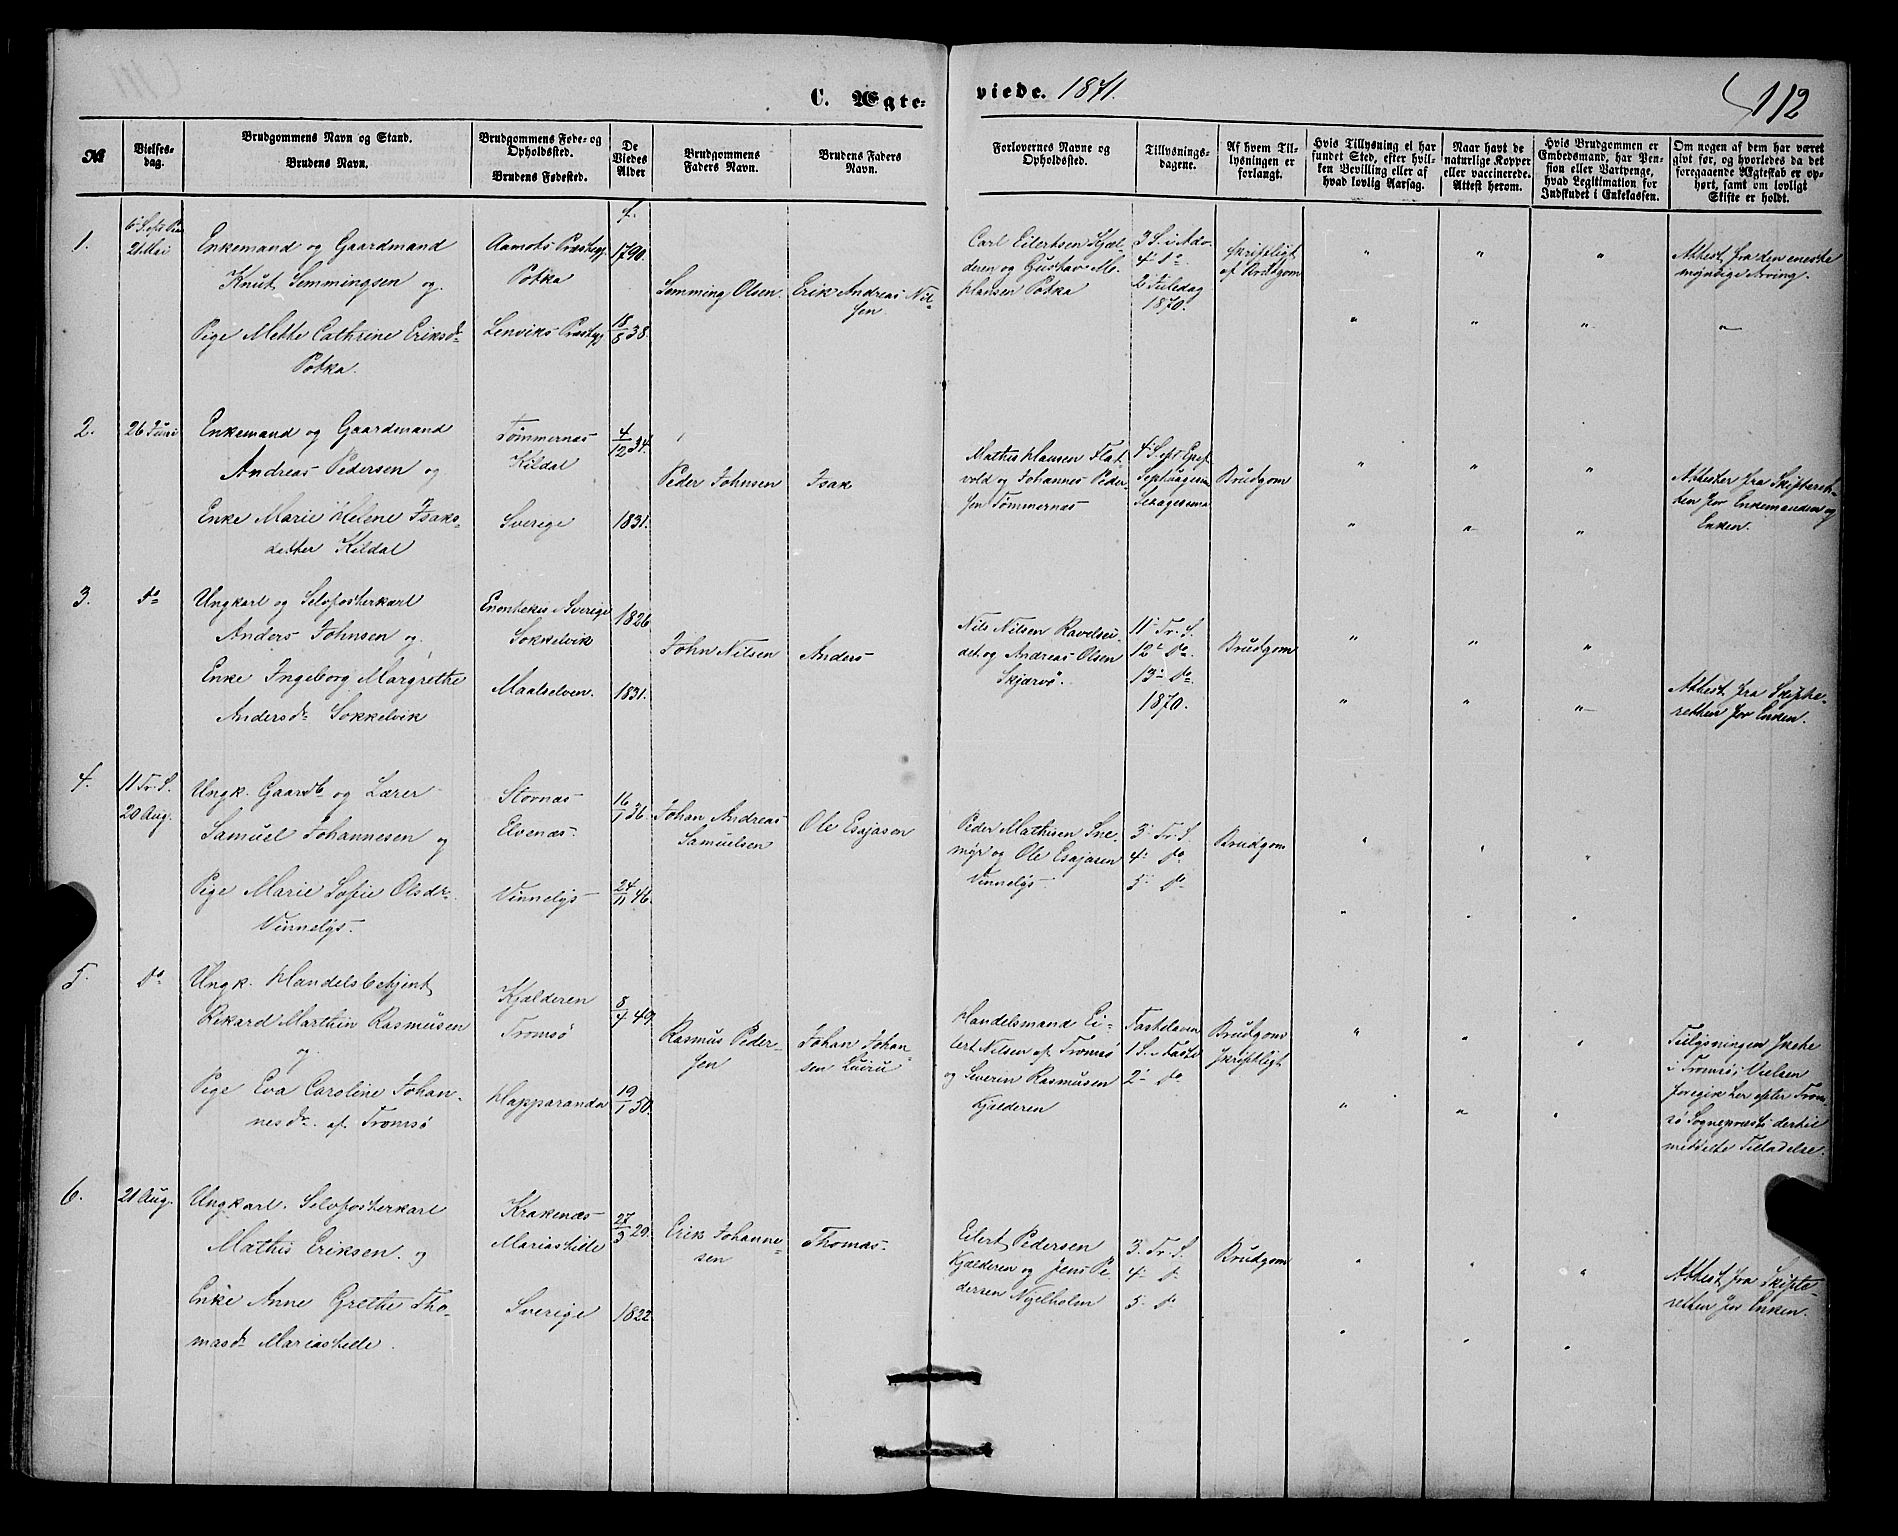 C. Ægte-
viede. 1871.
112
№
Vielses-
dag.
Brudgommens Navn og Stand.
Brudens Navn.
Brudgommens Føde- og
Opholdssted.
Brudens Fødested.
De
Viedes
Alder
Brudgommens
Faders Navn.
Brudens Faders
Navn.
Forlovernes Navne og
Opholdssted.
Tillysnings-
dagene.
Af hvem Til-
lysningen er
forlangt.
Hvis Tillysning ei har
fundet Sted, efter hvil-
ken Bevilling eller af
hvad lovlig Aarsag.
Naar havt de
naturlige Kopper
eller vaccinerede.
Attest herom.
Hvis Brudgommen er
Embedsmand, har Pen-
sion eller Vartpenge,
hvad Legitimation for
Indskudet i Enkekassen.
Om nogen af dem har været
givt før, og hvorledes da det
foregaaende Ægteskab er op-
hørt, samt om lovligt
Skifte er holdt.
1.
21 Mai
Enkemand og Gaardmand
Knut Semmingsen og
Pige Mette Cathrine Eriksd.
Potka.
Aamots Præstegj.
Potka
Lenviks Præstegj
1790.
18/8 38.
Semming Olsen.
Erik Andreas Nil-
sen
Carl Eilertsen Kjæl-
deren og Gustav Mo
Hansen Potka
3 S. i Adv.
4 do
2 Juledag
1870.
skriftligt
af Brudgom
" " "
Attest fra den eneste
myndige Arving.
" " " "
2.
26 Juni
Enkemand og Gaardmand
Andreas Pedersen og
Enke Marie Helene Isaks-
datter Kildal
Tømmernæs
Kildal
Sverige
4/12 34.
1831.
Peder Johnsen
Isak
Mathis Hansen Flat
vold og Johannes Peder-
sen Tømmernæs
4 S. eft Epif
Septuagesima
Sexagesima
Brudgom
" " "
" " "
Attester fra Skifteret-
ten for Enkemanden og
Enken.
3.
do
Ungkarl og Selvfosterkarl
Anders Johnsen og
Enke Ingeborg Margrethe
Andersdr Sokkelvik
Enontekis i Sverige
Sokkelvik
Maalselven.
1826
1831.
John Nilsen
Anders
Nils Nilsen Ravelsei-
det og Andreas Olsen
Skjærvø.
11 Tr. S.
12 do
13 do
1870.
Brudgom
" " "
" " "
Attest fra Skifte-
retten for Enken.
4.
11 Tr. S.
20 Aug.
Ungk. Gaardb. og Lærer
Samuel Johannesen og
Pige Marie Sofie Olsdr.
Vinnelys.
Stornæs
Elvenæs
Vinnelys
16/1 36.
24/11 46.
Johan Andreas
Samuelsen
Ole Esajasen
Peder Mathisen Sne-
myr og Ole Esajasen
Vinnelys.
3 Tr. S.
4 do
5 do
Brudgom
" " "
" " "
5.
do
Ungk. Handelsbetjent
Rikard Marthin Rasmusen
og
Pige Eva Caroline Johan-
nesdr. af Tromsø
Kjælderen
Tromsø
Happaranda
8/4 49
19/1 50.
Rasmus Peder-
sen
Johan Johan-
sen
Handelsmand Ei-
lert Nilsen af Tromsø
og Severin Rasmusen
Kjælderen
Fastelavn
1 S. i Faste
2 do
Brudgom
skriftligt
" " "
" " "
Tillysningen skete
i Tromsø; Vielsen
foregik her efter Trom-
sø Sognepræsts dertil
meddelte Tilladelse.
6.
21 Aug.
Ungkarl. Selvfosterkarl
Mathis Eriksen og
Enke Anne Grethe Tho-
masdr Mariashelle.
Krakenæs
Mariashelle
Sverige
27/3 29.
1822.
Erik Johanne-
sen
Thomas.
Eilert Pedersen
Kjælderen og Jens Pe-
dersen Nyelholm
3 Tr. S.
4 do
5 do
Brudgom
" " "
" " "
Attest fra Skifte-
retten for Enken.